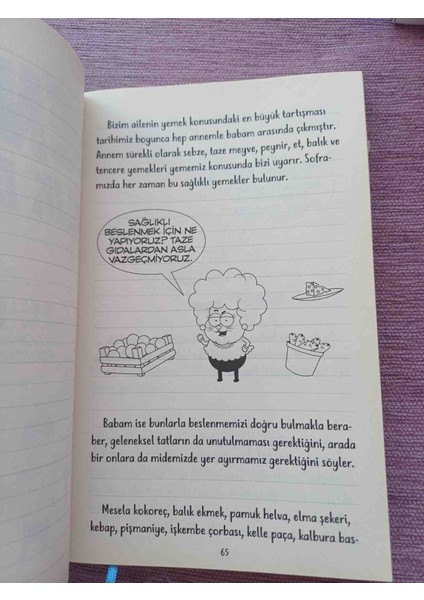 Bizim ailenin yemek konusundaki en büyük tartışması
tarihimiz boyunca hep annemle babam arasında çıkmıştır.
Annem sürekli olarak sebze, taze meyve, peynir, et, balık ve
tencere yemekleri yememiz konusunda bizi uyarır. Sofra-
mızda her zaman bu sağlıklı yemekler bulunur.
SAĞLIKLI
BESLENMEK İÇİN NE
YAPIYORUZ? TAZE
GIDALARDAN ASLA
VAZGEÇMİYORUZ.
Babam ise bunlarla beslenmemizi doğru bulmakla bera-
ber, geleneksel tatların da unutulmaması gerektiğini, arada
bir onlara da midemizde yer ayırmamız gerektiğini söyler.
Mesela kokoreç, balık ekmek, pamuk helva, elma şekeri,
kebap, pişmaniye, işkembe çorbası, kelle paça, kalbura bas-
65